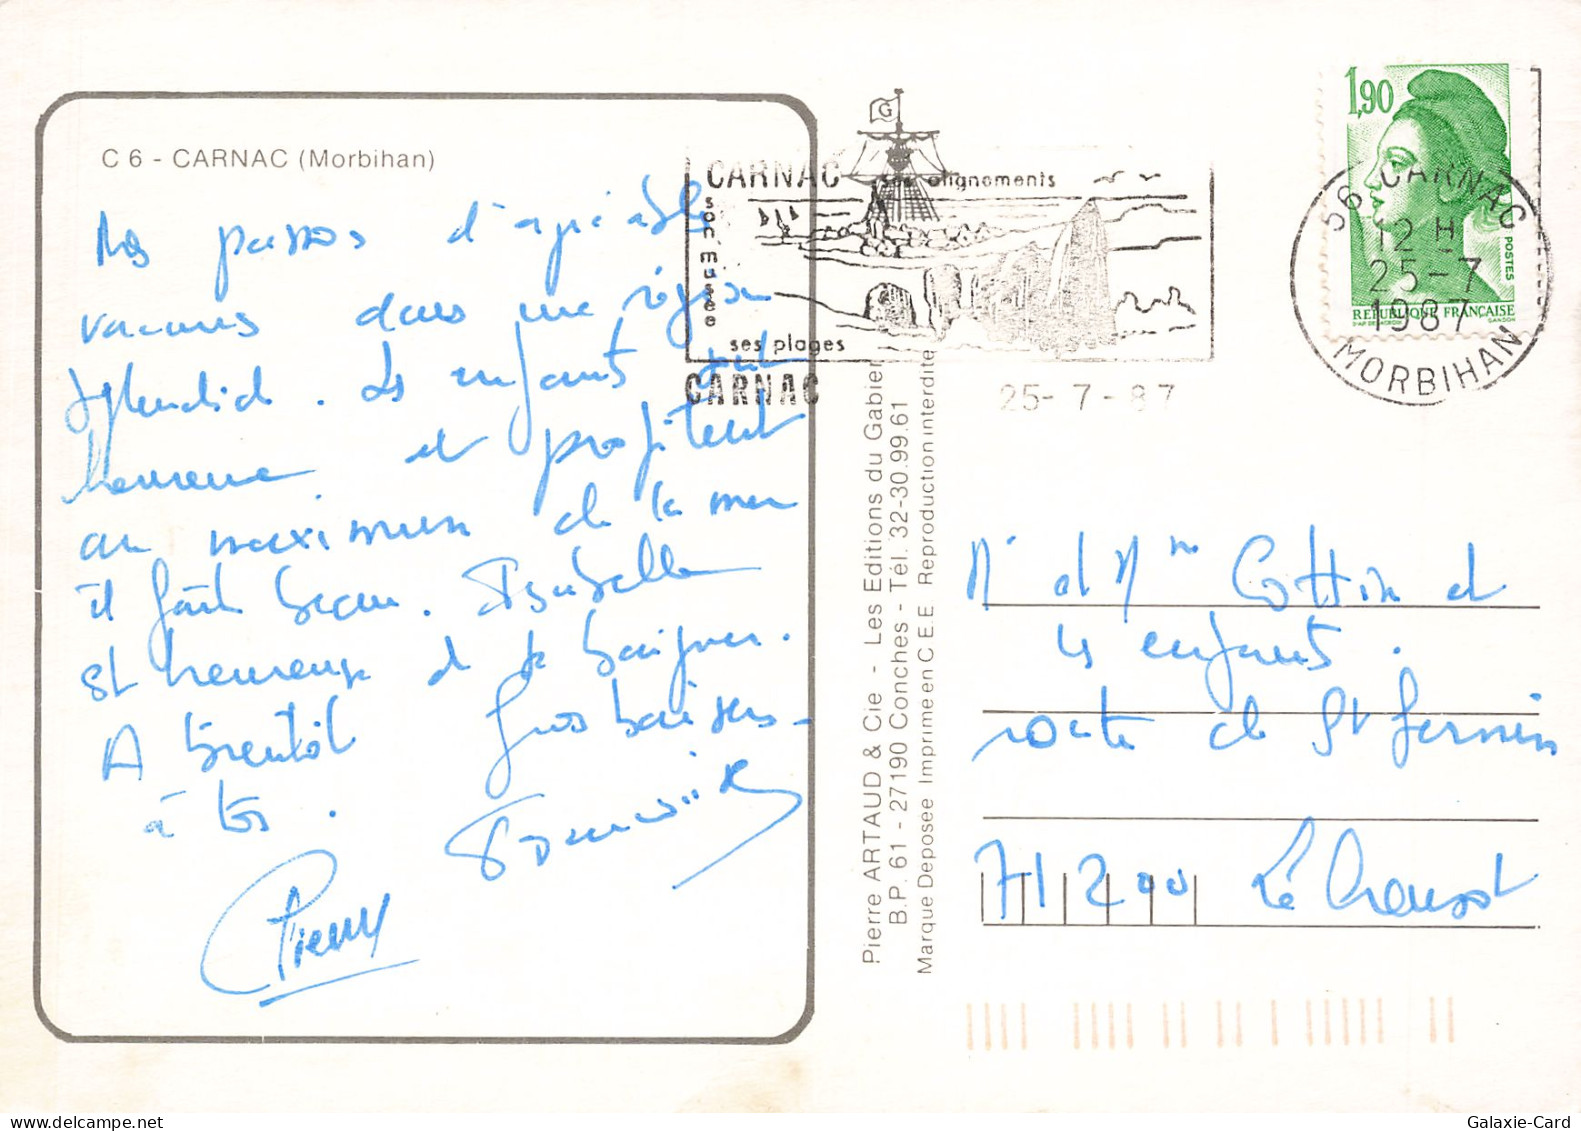 C 6 - CARNAC (Morbihan)
Ns passons d'agréables
vacances dans une région
splendide. Ls enfants sont
heureux et profitent
au maximum de la mer
il fait beau. Isabelle
est heureuse de se baigner.
A bientôt gros baisers
à ts.
Pierre
CARNAC ses alignements
son musée
ses plages
CARNAC
25-7-87
G
1,90
POSTES
REPUBLIQUE FRANÇAISE
D'AP. DELACROIX GANDON
56 CARNAC
12 H
25-7
1987
MORBIHAN
Pierre ARTAUD & Cie - Les Editions du Gabier
B.P. 61 - 27190 Conches - Tél. 32-30.99.61
Marque Deposée Imprime en C.E.E. Reproduction interdite
Mr et Mme Cottin et
ls enfants.
route de St Sernin
71200 Le Creusot
Galaxie-Card